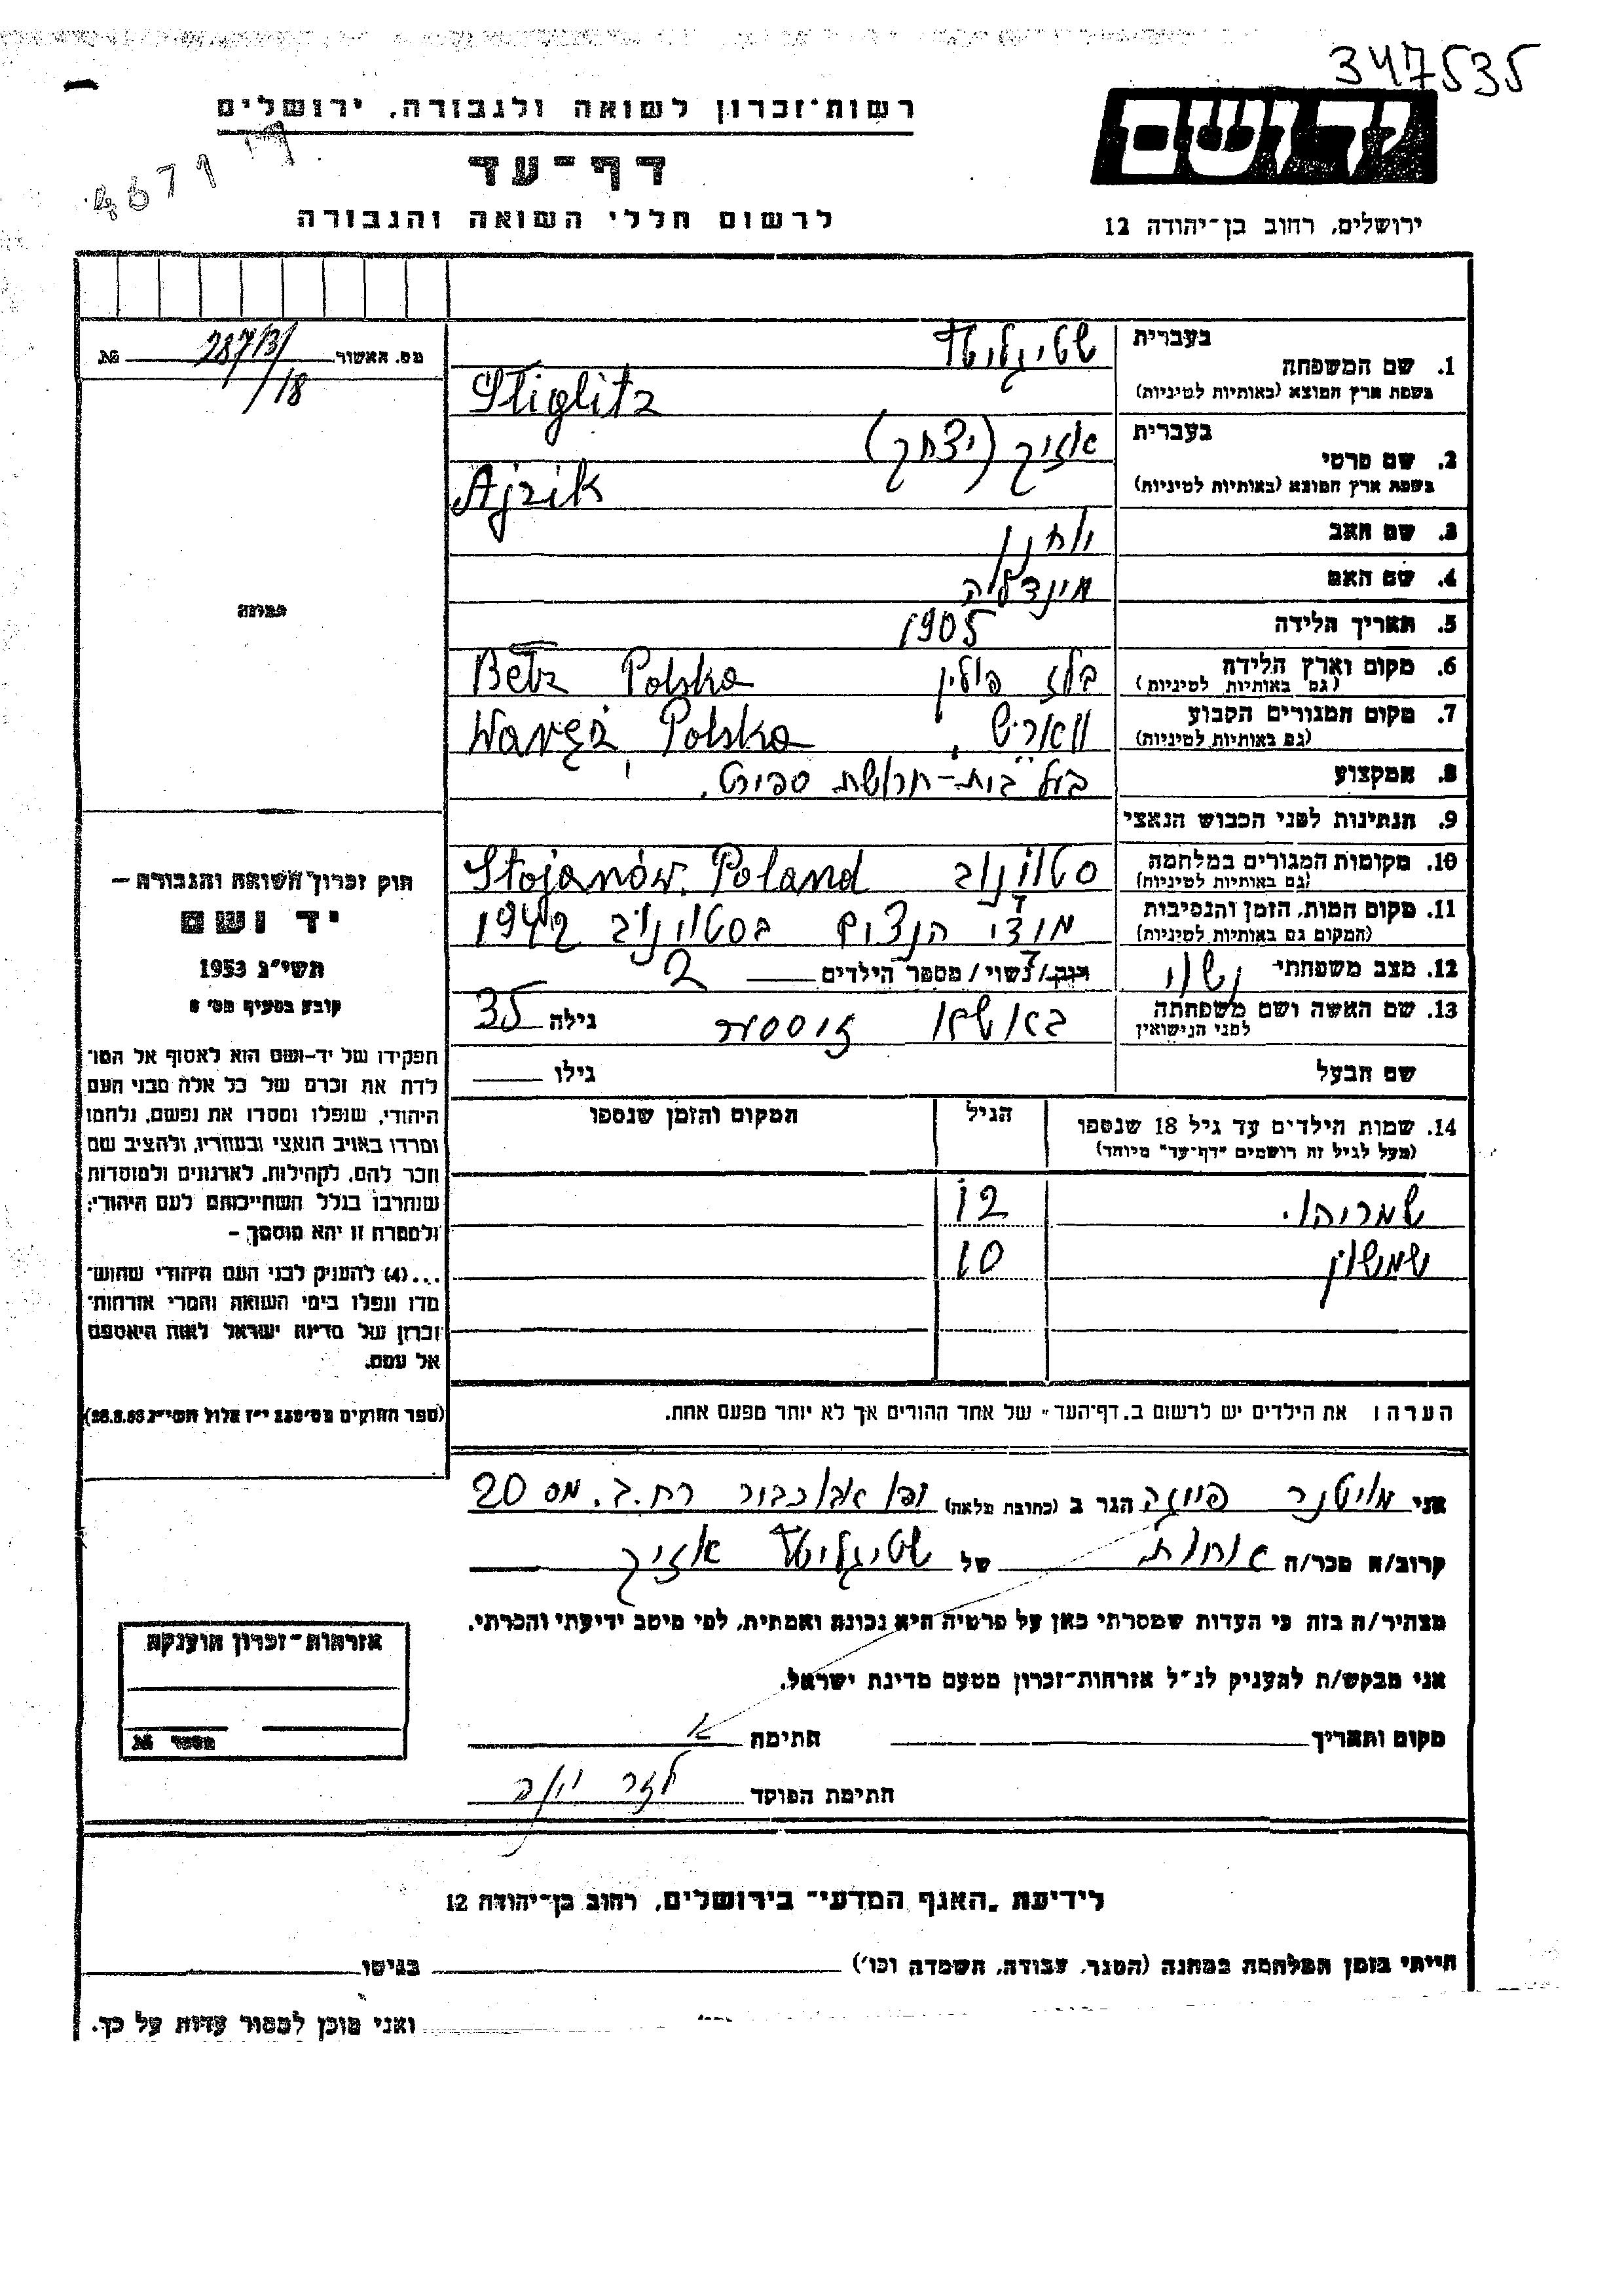 347535
רשות-זכרון לשואה ולגבורה, ירושלים
יד ושם
דף-עד
לרשום חללי השואה והגבורה
ירושלים, רחוב בן-יהודה 12
4671
מס. האשור 287/31/18 №
1. שם המשפחה בעברית שטיגליץ
בשפת ארץ המוצא (באותיות לטיניות) Stiglitz
2. שם פרטי בעברית אזיק (יצחק)
בשפת ארץ המוצא (באותיות לטיניות) Ajzik
3. שם האב
4. שם האם מינדליה
5. תאריך הלידה 1905
6. מקום וארץ הלידה בלז פולין Bełz Polska
(גם באותיות לטיניות)
7. מקום המגורים הקבוע ווארש Waręż Polska
(גם באותיות לטיניות)
8. המקצוע בעל בית-חרושת ספירט.
9. הנתינות לפני הכבוש הנאצי
10. מקומות המגורים במלחמה סטוינוב Stojanów. Poland
(גם באותיות לטיניות)
11. מקום המות, הזמן והנסיבות בסטוינוב 1942
(המקום גם באותיות לטיניות)
12. מצב משפחתי נשוי רווק/נשוי/מספר הילדים 2
13. שם האשה ושם משפחתה באשא זוססמר גילה 35
לפני הנישואין
שם הבעל גילו
14. שמות הילדים עד גיל 18 שנספו הגיל המקום והזמן שנספו
(מעל לגיל זה רושמים "דף-עד" מיוחד)
שמריהו. 12
שמשון 10
הערה: את הילדים יש לרשום ב„דף-העד" של אחד ההורים אך לא יותר מפעם אחת.
תמונה
חוק זכרון השואה והגבורה –
יד ושם
תשי"ג 1953
קובע בסעיף מס' 2
תפקידו של יד-ושם הוא לאסוף אל המו-
לדת את זכרם של כל אלה מבני העם
היהודי, שנפלו ומסרו את נפשם, נלחמו
ומרדו באויב הנאצי ובעוזריו, ולהציב שם
וזכר להם, לקהילות, לארגונים ולמוסדות
שנחרבו בגלל השתייכותם לעם היהודי;
ולמטרה זו יהא מוסמך –
...(4) להעניק לבני העם היהודי שהוש-
מדו ונפלו בימי השואה והמרי אזרחות-
זכרון של מדינת ישראל לאות היאספם
אל עמם.
(ספר החוקים מס' 132 י"ז אלול תשי"ג 28.8.53)
אני מויטנר פייגה הגר ב (כתובת מלאה) יפו אבו כביר רח. ג. מס 20
קרוב/ה מכר/ה אחות של שטיגליץ אזיק
מצהיר/ה בזה כי העדות שמסרתי כאן על פרטיה היא נכונה ואמתית, לפי מיטב ידיעתי והכרתי.
אני מבקש/ת להעניק לנ"ל אזרחות-זכרון מטעם מדינת ישראל.
מקום ותאריך חתימה
חתימת הפוקד
אזרחות-זכרון הוענקה
מספר №
לידיעת „האגף המדעי" בירושלים, רחוב בן-יהודה 12
הייתי בזמן המלחמה במחנה (הסגר, עבודה, השמדה וכו') בגיטו
ואני מוכן למסור עדות על כך.